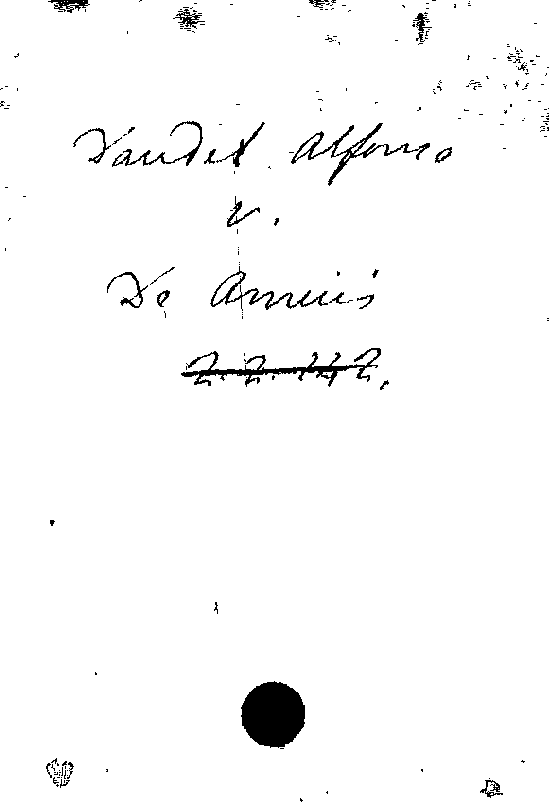 Daudet Alfonso
v.
De Amicis
2. 2. 442.